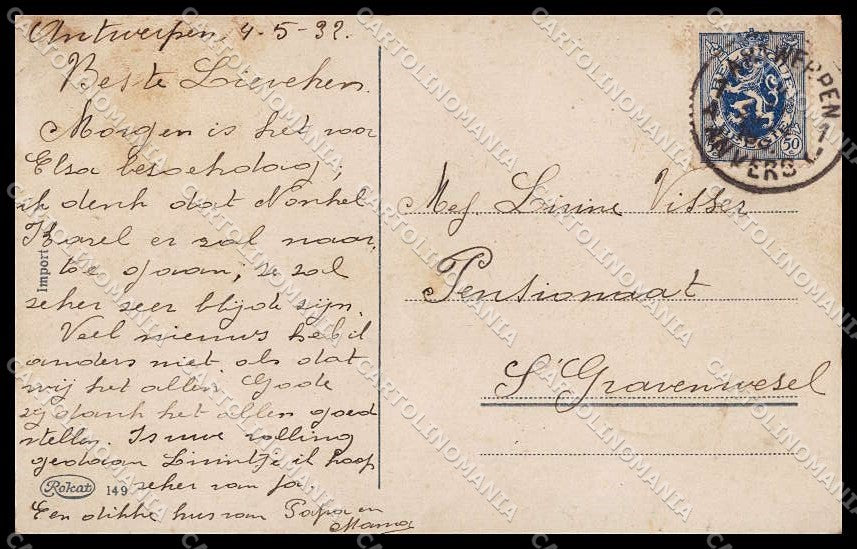 Antwerpen 4-5-32.
Beste Lieveken.
Morgen is het voor
Elza besoekdag,
ik denk dat Nonkel
Karel er zal naar
toe gaan, ze zal
zeker zeer blijde zijn.
Veel nieuws heb ik
anders niet als dat
wij het allen Gode
zy dank het allen goed
stellen. Is uwe
gedaan ik hoop
zeker van ja.
Een dikke kus van Papa en
Mama
Import
Rokat 149
ANTWERPEN 1
ANVERS 1
BELGIE
50
Mej. Visser
Pensionaat
S'Gravenwesel
CARTOLINOMANIA